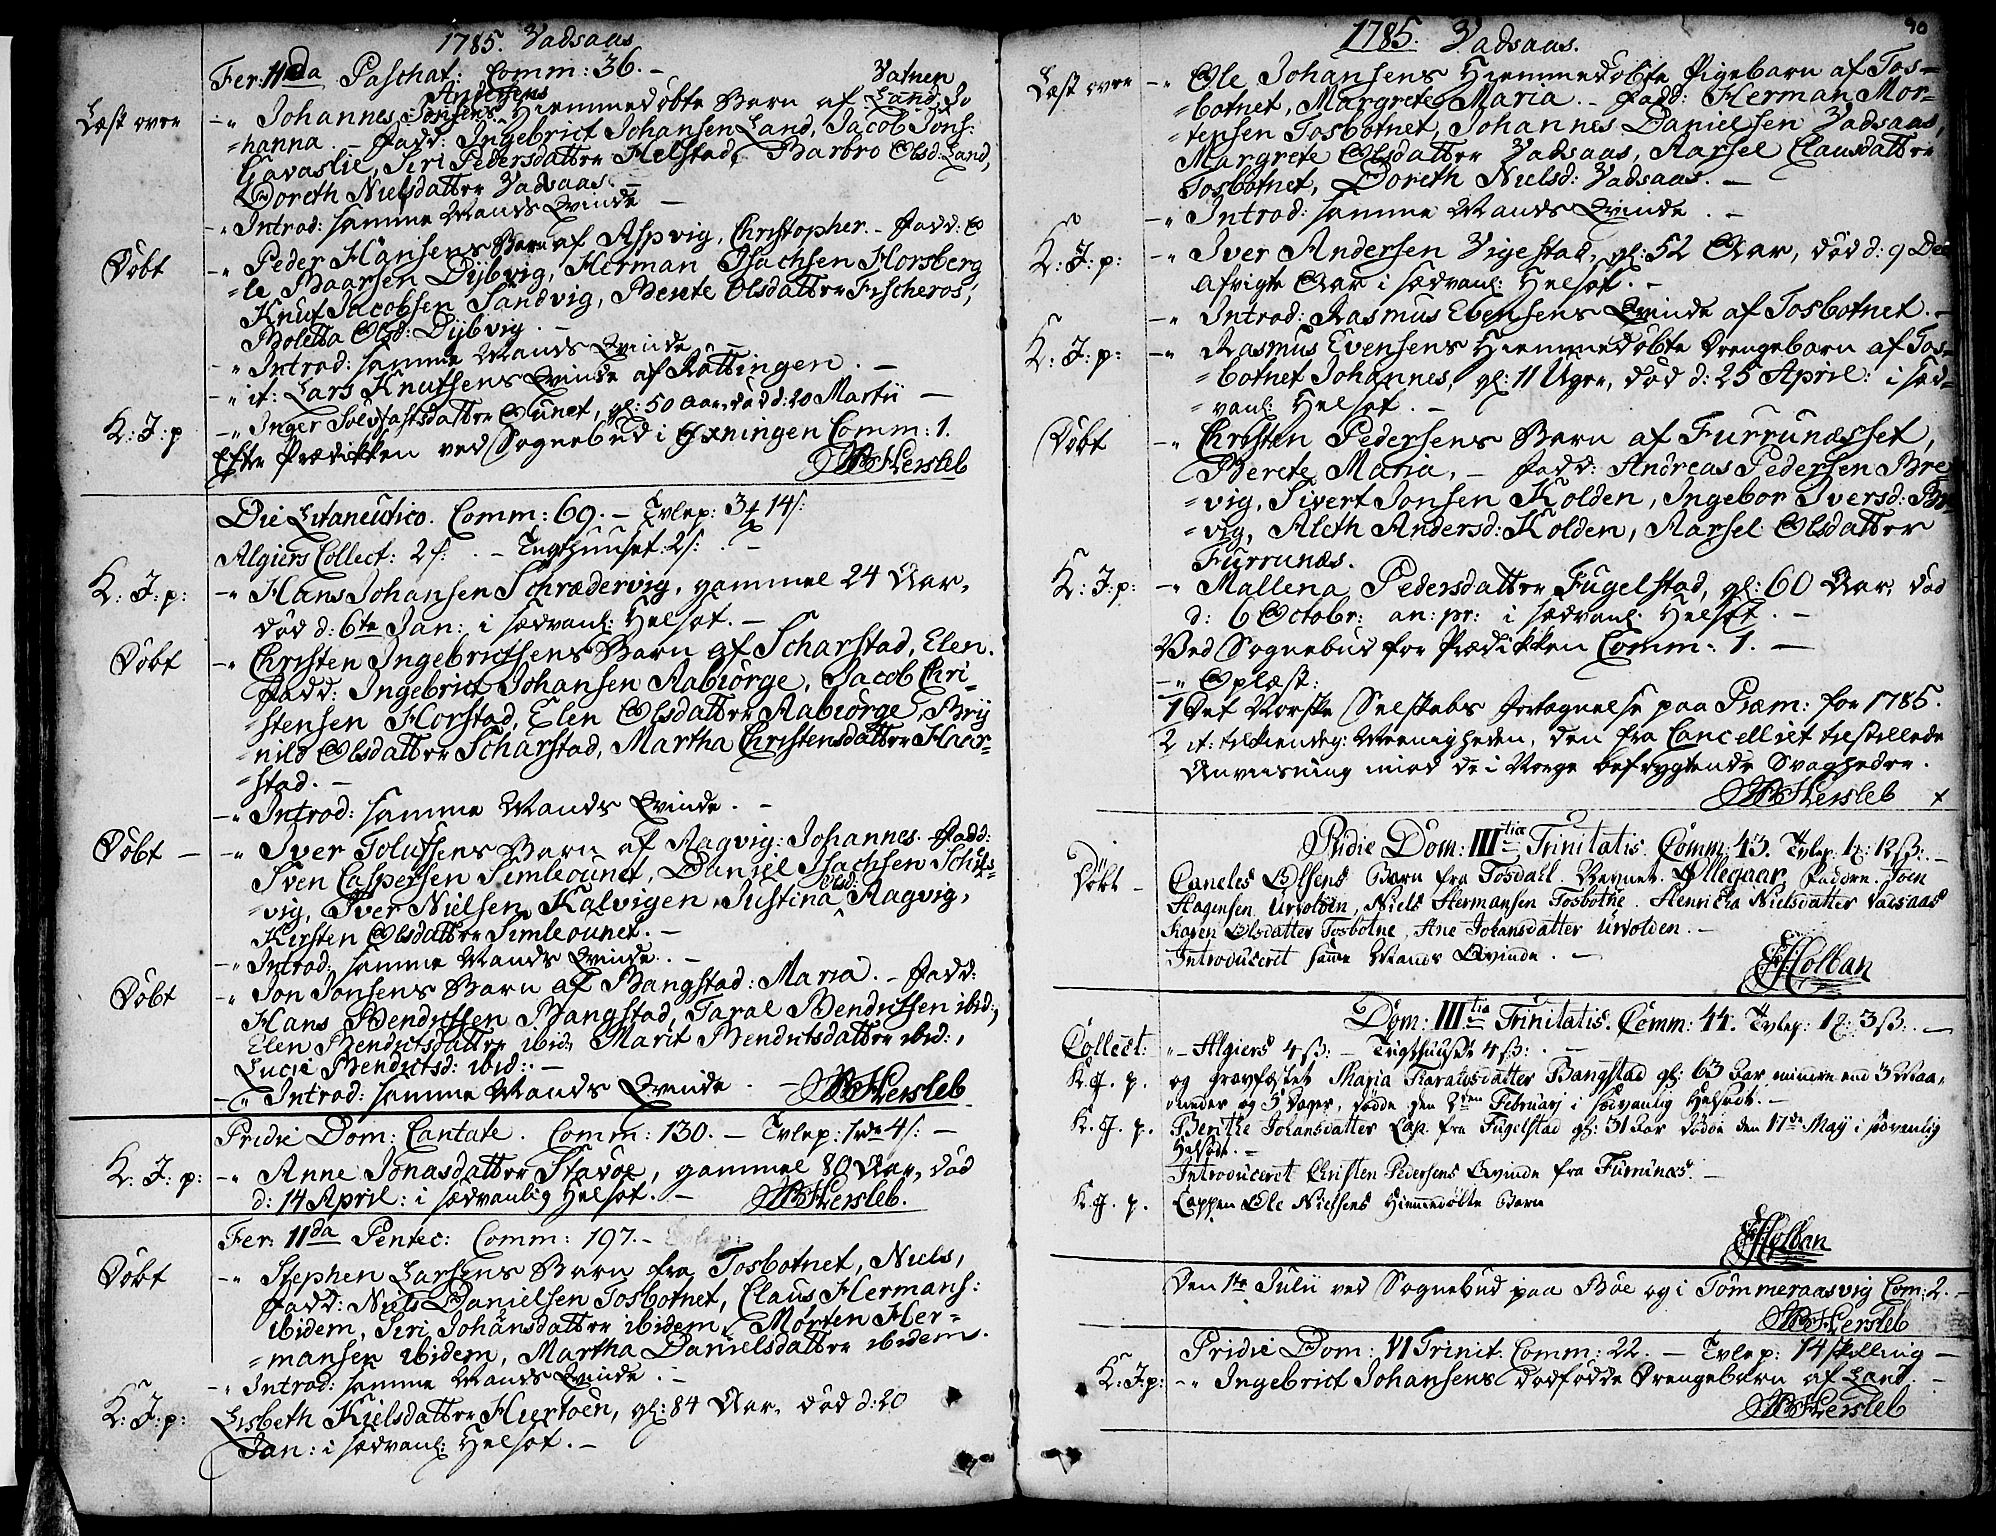 1785. Vadsaas
Fer: IIda Paschat: Comm: 36. –
Andersens Vatnen
Læst over -" Johannes Jonsens Hiemmedøbte Barn af Land, Jo
=hanna. – Fadd: Ingebrict Johansen Land, Jacob Jons:
Gavaslie, Siri Pedersdatter Helstad, Barbro Olsd: Land,
Doreth Nielsdatter Vadsaas. –
-" Introd: samme Mands Qvinde –
Døbt -" Peder Hansens Barn af Aspvig, Christopher. – Fadd: O
=le Baarsen Dÿbvig, Herman Isachsen Horsberg
Knut Jacobsen Sandvig, Berete Olsdatter Fischeros,
Boletta Olsd: Dÿbvig. –
-" Introd: samme Mands Qvinde –
-" it: Lars Knutsens Qvinde af Røttingen. –
K: J: p -" Inger Solofastsdatter Qunet, gl: 50 Aar, død d: 20 Martii –
Efter Prædikken ved Sognebud i Øxningen Comm: 1.
Hersleb
Die Litaneutico. Comm: 69. – Tvlep: 3 14 s:
Algiers Collect: 2 s: . – Tugthuuset: 2 s: . –
K: J: p: -" Hans Johansen Schrædervig, gammel 24 Aar,
død d: 6te Jan: i sædvanl: Helsot. –
Døbt -" Christen Ingebrictsens Barn af Scharstad, Elen.
Fadd: Ingebrict Johansen Aabiørge, Jacob Chri=
=stensen Horstad, Elen Olsdatter Aabiørge, Brÿ
=nild Olsdatter Scharstad, Martha Christensdatter Haar=
=stad. –
-" Introd: samme Mands Qvinde. –
Døbt – -" Iver Tolufsens Barn af Aagvig: Johannes. Fadd:
Sven Caspersen Simleounet, Daniel Isachsen Schils=
Olsd:
=vig, Iver Nielsen Kalvigen, Justina Aagvig,
Kirsten Olsdatter Simleounet. –
-" Introd: samme Mands Qvinde. –
Døbt -" Jon Jonsens Barn af Bangstad: Maria. – Fadd:
Hans Bendictsen Bangstad, Taral Bendictsen ibid:,
Elen Bendictsdatter ibid: Marit Bendictsdatter ibid:,
Lucie Bendictsd: ibid: –
-" Introd: samme Mands Qvinde. – Hersleb
Pridie Dom: Cantate. Comm: 130. – Tvlep: 4 s: –
K: J: p: -" Anne Jonasdatter Stavøe, gammel 80 Aar, død
d: 14 April: i sædvanlig Helsot. – Hersleb.
Fer: IIda Pentec: Comm: 197. –
Døbt -" Stephen Larsens Barn fra Tosbotnet, Niels,
Fadd: Niels Danielsen Tosbotnet, Claus Hermans:
ibidem, Siri Johansdatter ibidem, Morten Her=
=mansen ibidem, Martha Danielsdatter ibidem.
-" Introd: samme Mands Qvinde. –
K: J: p: Lisbeth Kielsdatter Hiertøen, gl: 84 Aar, død d: 20
Jan: i sædvanl: Helsot. –
1785. Vadsaas. 90
Læst over -" Ole Johansens Hiemmedøbte Pigebarn af Tos=
=botnet, Margrete Maria. – Fadd: Herman Mor=
=tensen Tosbotnet, Johannes Danielsen Vadsaas,
Margrete Olsdatter Vadsaas, Aarsel Clausdatter
Tosbotnet, Doreth Nielsd: Vadsaas. –
-" Introd: samme Mands Qvinde. –
K: J: p: -" Iver Andersen Vigestad, gl: 52 Aar, død d: 9 Dec
afvigte Aar i sædvanl: Helsot. –
-" Introd: Rasmus Evensens Qvinde af Tosbotnet. –
K: J: p: -" Rasmus Evensens Hiemmedøbte Drengebarn af Tos=
=botnet Johannes, gl: 11 Uger, død d: 25 April: i sæd=
=vanl: Helsot. –
Døbt -" Christen Pedersens Barn af Furrunæsset,
Berete Maria, – Fadd: Andreas Pedersen Bre
=vig, Sivert Jonsen Kolden, Ingebor Iversd: Bre=
=vig, Aleth Andersd: Kolden, Aarsel Olsdatter
Furrunæs.
K: J: p: -" Mallena Pedersdatter Fugelstad, gl: 60 Aar, død
d: 6 Octobr: an: pr: i sædvanl: Helsot. –
Ved Sognebud for Prædikken Comm: 1. –
-" Oplæst:
1 Det Norske Selskabs Fortegnelse paa Præm: for 1785.
2 it: tilkiendeg: Meenigheden, den fra Cancelliet tilstillede
Anviisning imod de i Norge befrygtende Svagheder.
Hersleb
Pridie Dom: IIItia Trinitatis. Comm: 43. Tvlep: 12 ß: –
Døbt – Caneles Olsens Barn fra Tosdall. Nevnet. Ollegaar, Fadere. Joen
Hagensen Urvolden, Niels Hermansen Tosbotne. Henricha Nielsdatter Vadsaas
Karen Olsdatter Tosbotne, Ane Johansdatter Urvolden. –
Introduceret samme Mands Qvinde. –
Holban
Dom: IIItia Trinitatis. Comm: 44. Tvlep: 3 ß: –
Collect: "– Algiers 4 ß: – Tugthuuset 4 ß: . –
K. J. p. og gravfæstet Maria Taraldsdatter Bangstad gl: 63 Aar mindre end 3 Maa=
=neder og 3 Dager, døde den 2den Februarj i sædvanlig Helsodt. –
K. J. p. Berithe Johansdatter Lap. fra Fugelstad gl: 31 Aar døde den 17de Maÿ i sædvenlig
Helsodt. –
Introduceret Christen Pedersens Qvinde fra Furrunæs. –
K. J. p. Lappen Ole Nielsens Hiemmedøbte Barn
Holban
Den 1te Julii ved Sognebud paa Bøe og i Tømmeraasvig Com: 2. –
Hersleb
Pridie Dom: VI Trinit. Comm: 22. – Tvlep: 14 skilling –
K: J: p: -" Ingebrict Johansens dødfødde Drengebarn af Land. –
Hersleb